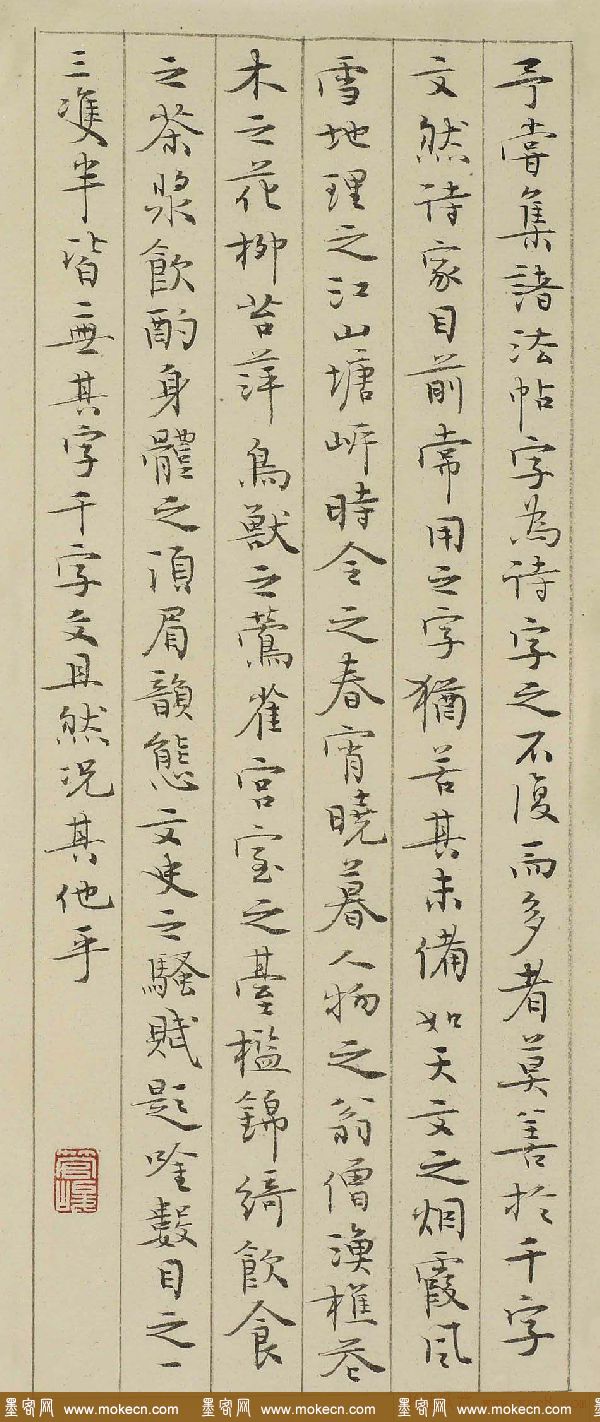 予嘗集諸法帖字為詩字之不復而多者莫善於千字
文然詩家目前常用之字猶苦其未備如天文之烟霞風
雪地理之江山塘岸時令之春宵曉暮人物之翁僧漁樵花
木之花柳苔萍鳥獸之鶯雀宮室之臺檻錦綺飲食
之茶漿飲酌身體之頂眉韻態文史之騷賦題吟數目之一
三雙半皆無其字千字文且然况其他乎
管峻
墨客网 www.mokecn.com 墨客网 www.mokecn.com 墨客网 www.mokecn.com